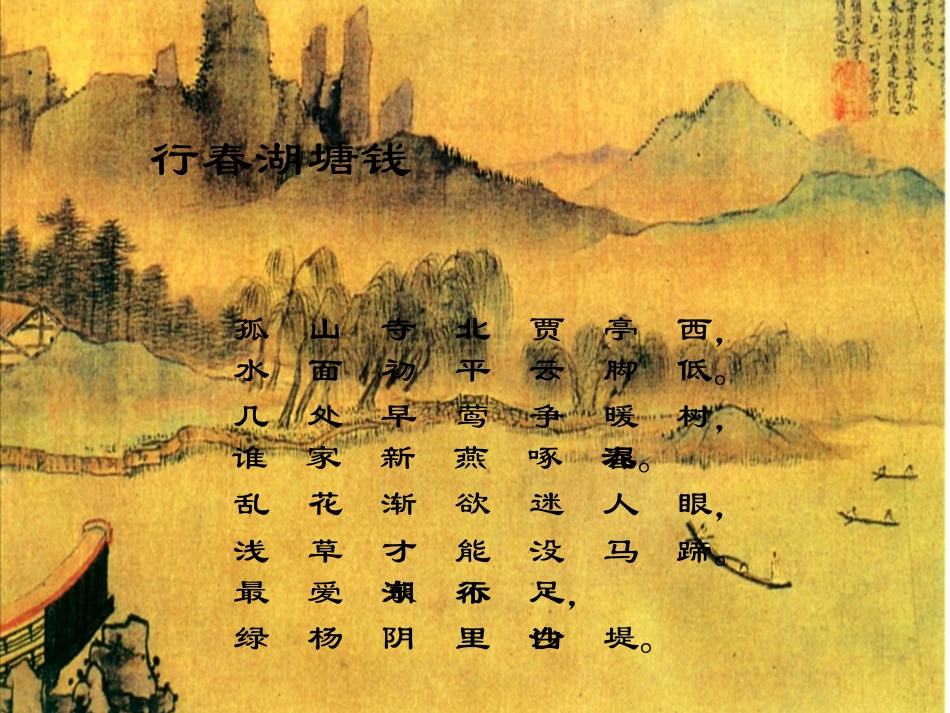 行春湖塘钱
孤山寺北贾亭西，
水面初平云脚低。
几处早莺争暖树，
谁家新燕啄春泥。
乱花渐欲迷人眼，
浅草才能没马蹄。
最爱湖东行不足，
绿杨阴里白沙堤。